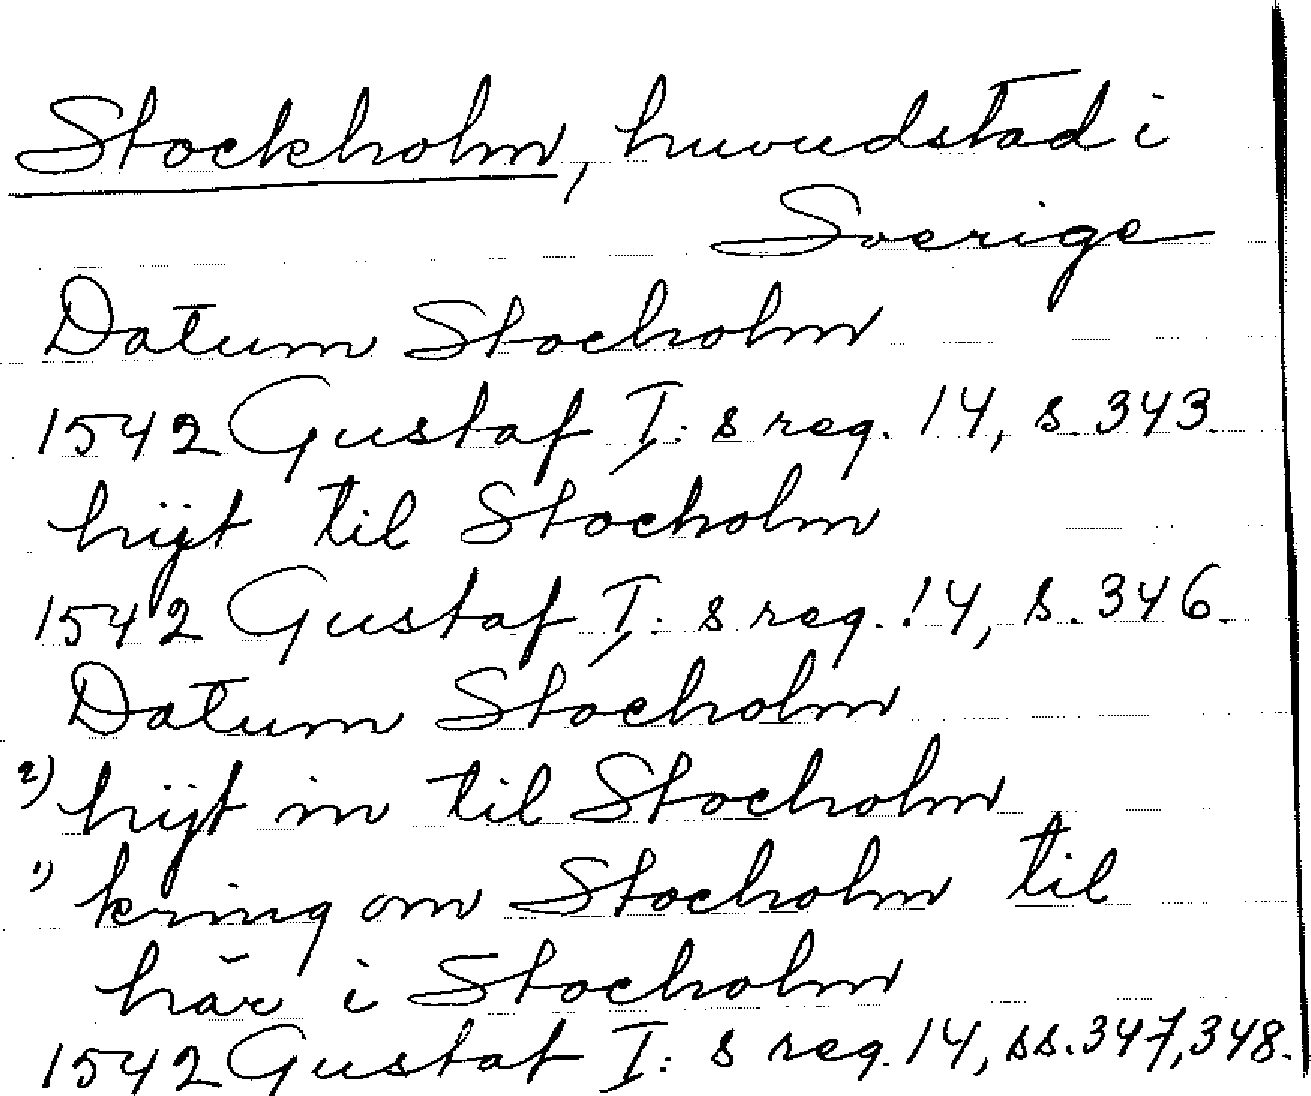 Stockholm, huvudstad i
Sverige
Datum Stocholm
1542 Gustaf I:s reg. 14, s. 343.
hijt til Stocholm
1542 Gustaf I:s reg. 14, s. 346.
Datum Stocholm
2) hijt in til Stocholm
1) kring om Stocholm til
här i Stocholm
1542 Gustaf I:s reg. 14, ss. 347, 348.